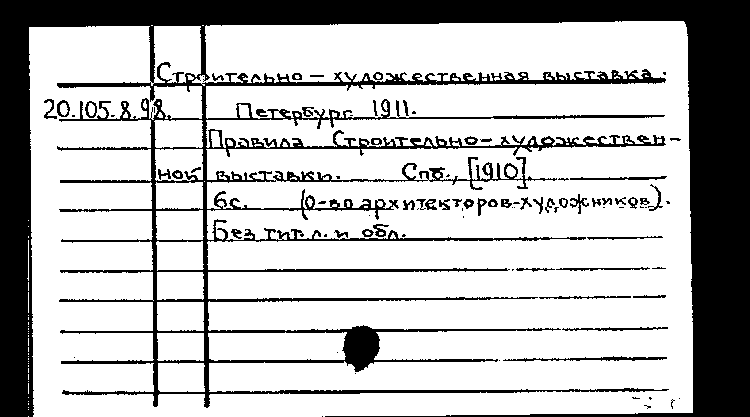 Строительно-художественная выставка.
20.105.8.98. Петербург 1911.
Правила Строительно-художествен-
ной выставки. Спб., [1910].
6с. (О-во архитекторов-художников).
Без тит.л. и обл.